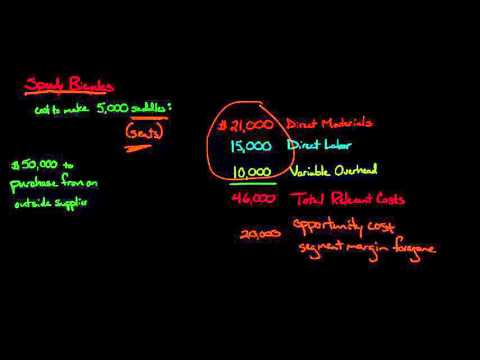 Speedy Bicycles
cost to make 5,000 saddles:
(seats)
$50,000 to
purchase from an
outside supplier
$21,000 Direct Materials
15,000 Direct Labor
10,000 Variable Overhead
46,000 Total Relevant Costs
20,000 opportunity cost
segment margin foregone